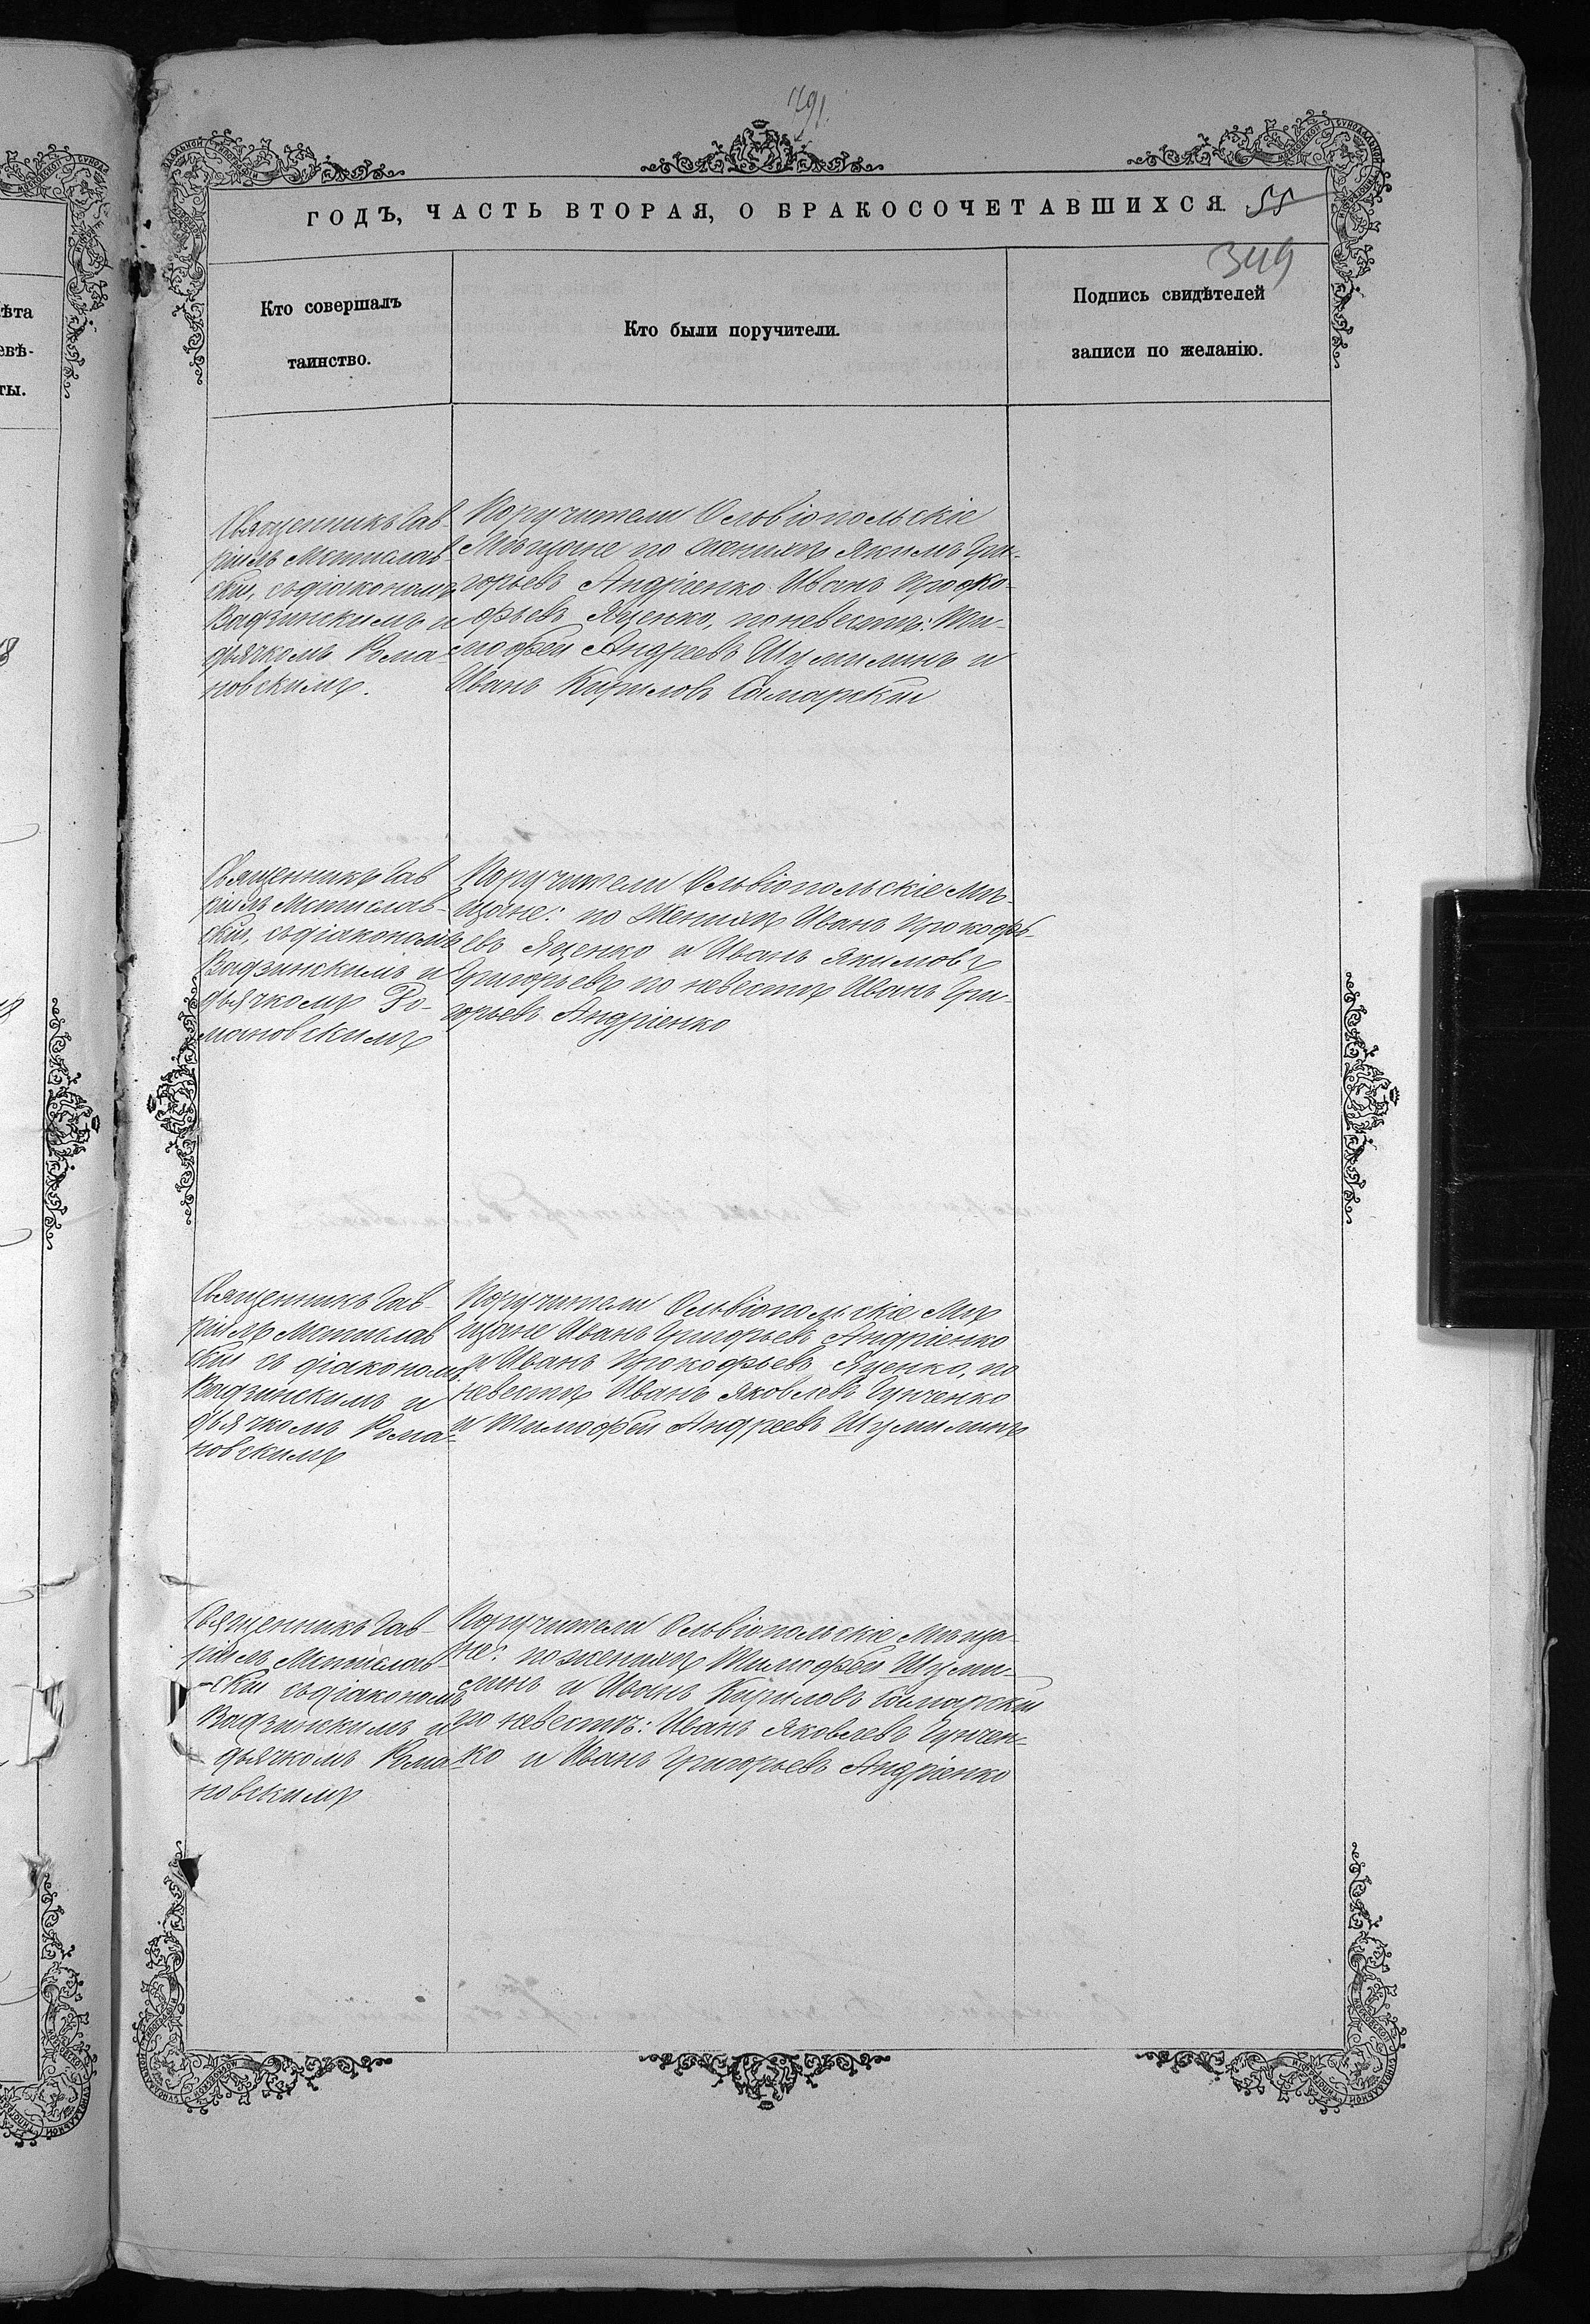 791.
ГОДЪ, ЧАСТЬ ВТОРАЯ, О БРАКОСОЧЕТАВШИХСЯ. 55
349
Кто совершалъ
таинство.
Кто были поручители.
Подпись свидѣтелей
записи по желанію.
Священникъ Гав-
ріилъ Мстислав-
скій, съ діакономъ
Вадзинскимъ и
дьячкомъ Рома-
новскимъ.
Поручители Ольвіопольскіе
Мѣщане по женихѣ Якимъ Гри-
горьевъ Андріенко Иванъ Проко-
фьевъ Яценко, по невестѣ: Ти-
мофей Андреевъ Шумилинъ и
Иванъ Кириловъ Самарскій
Священникъ Гав
ріилъ Мстислав-
скій, съ діакономъ
Вадзинскимъ и
дьячкомъ Ро-
мановскимъ
Поручители Ольвіопольскіе Мѣ-
щане: по женихѣ Иванъ Прокофь-
евъ Яценко и Иванъ Якимовъ
Григорьевъ по невестѣ Иванъ Гри-
горьевъ Андріенко
Священникъ Гав-
ріилъ Мстислав
скій съ діакономъ
Вадзинскимъ и
дьячкомъ Рома-
новскимъ
Поручители Ольвіопольскіе Мѣ
щане Иванъ Григорьевъ Андріенко
и Иванъ Прокофьевъ Яценко, по
невестѣ Иванъ Яковлевъ Гунченко
и Тимофей Андреевъ Шумилинъ
Священникъ Гав-
ріилъ Мстислав-
скій съ діакономъ
Вадзинскимъ и
дьячкомъ Рома-
новскимъ
Поручители Ольвіопольскіе Мѣща-
не: по женихѣ Тимофей Шуми-
линъ и Иванъ Кириловъ Самарскій
по невестѣ: Иванъ Яковлевъ Гунчен-
ко и Иванъ Григорьевъ Андріенко